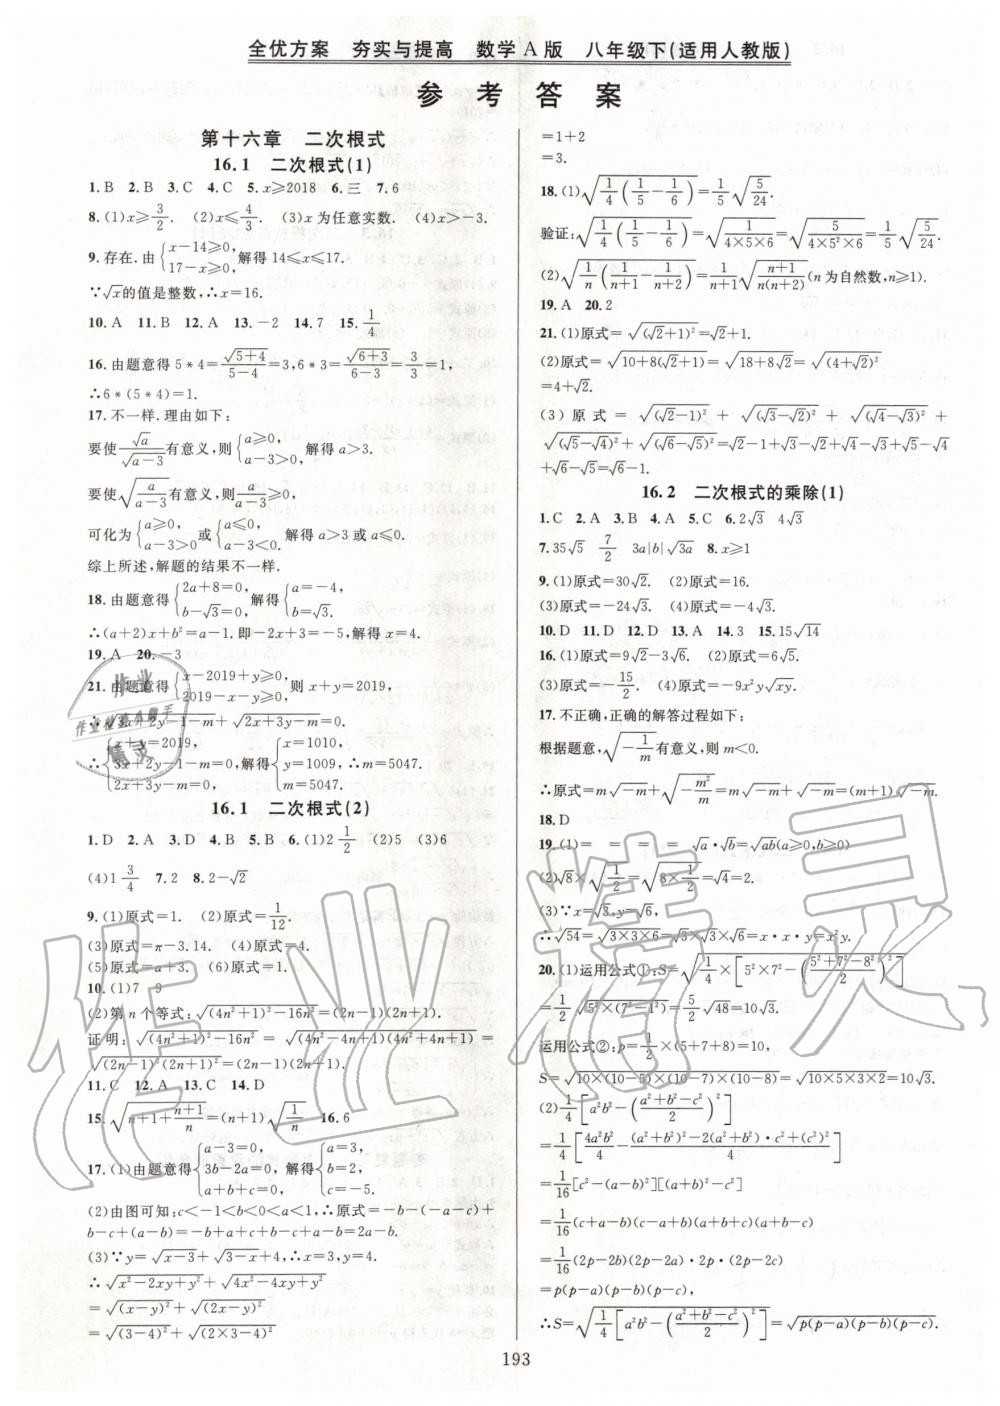 全优方案　夯实与提高　数学A版　八年级下(适用人教版)
参考答案
第十六章　二次根式
16.1　二次根式(1)
1.B　2.B　3.C　4.C　5.x≥2018　6.三　7.6
8.(1)x≥3/2.　(2)x≤4/3.　(3)x为任意实数.　(4)x>-3.
9.存在.由{x-14≥0, 17-x≥0},解得14≤x≤17.
∵√x的值是整数,∴x=16.
10.A　11.B　12.A　13.-2　14.7　15.1/4
16.由题意得5*4=√(5+4)/(5-4)=3,6*3=√(6+3)/(6-3)=3/3=1,
∴6*(5*4)=1.
17.不一样.理由如下:
要使√a/√(a-3)有意义,则{a≥0, a-3>0},解得a>3.
要使√(a/(a-3))有意义,则a/(a-3)≥0,
可化为{a≥0, a-3>0或{a≤0, a-3<0.解得a>3或a≤0.
综上所述,解题的结果不一样.
18.由题意得{2a+8=0, b-√3=0,解得{a=-4, b=√3.
∴(a+2)x+b²=a-1.即-2x+3=-5,解得x=4.
19.A　20.-3
21.由题意得{x-2019+y≥0, 2019-x-y≥0,则x+y=2019,
∴√(3x+2y-1-m)+√(2x+3y-m)=0.
∴{x+y=2019, 3x+2y-1-m=0, 2x+3y-m=0,解得{x=1010, y=1009, m=5047.∴m=5047.
16.1　二次根式(2)
1.D　2.A　3.D　4.B　5.B　6.(1)2 1/2　(2)5　(3)6
(4)1 3/4　7.2　8.2-√2
9.(1)原式=1.　(2)原式=1/12.
(3)原式=π-3.14.　(4)原式=4.
(5)原式=a+3.　(6)原式=1.
10.(1)7　9
(2)第n个等式:√((4n²+1)²-16n²)=(2n-1)(2n+1).
证明:√((4n²+1)²-16n²)=√((4n²-4n+1)(4n²+4n+1))=
√((2n-1)²(2n+1)²)=(2n-1)(2n+1).
11.C　12.A　13.C　14.D
15.√(n+1+(n+1)/n)=(n+1)√(1/n)　16.6
17.(1)由题意得{a-3=0, 3b-2a=0, a+b+c=0,解得{a=3, b=2, c=-5.
(2)由图可知:c<-1<b<0<a<1,∴原式=-b-(-a-c)+
b-c+(a-b)=-b+a+c+b-c+a-b=2a-b.
(3)∵y=√(x-3)+√(3-x)+4,∴x=3,y=4.
∴√(x²-2xy+y²)+√(4x²-4xy+y²)
=√((x-y)²)+√((2x-y)²)
=√((3-4)²)+√((2×3-4)²)
=1+2
=3.
18.(1)√(1/4(1/5-1/6))=1/5√(5/24).
验证:√(1/4(1/5-1/6))=√(1/(4×5×6))=√(5/(4×5²×6))=1/5√(5/24).
(2)√(1/n(1/(n+1)-1/(n+2)))=1/(n+1)√((n+1)/(n(n+2)))(n为自然数,n≥1).
19.A　20.2
21.(1)原式=√((√2+1)²)=√2+1.
(2)原式=√(10+8(√2+1))=√(18+8√2)=√((4+√2)²)
=4+√2.
(3)原式=√((√2-1)²)+√((√3-√2)²)+√((√4-√3)²)+
√((√5-√4)²)+√((√6-√5)²)=√2-1+√3-√2+√4-√3+√5-√4
+√6-√5=√6-1.
16.2　二次根式的乘除(1)
1.C　2.A　3.B　4.A　5.C　6.2√3　4√3
7.35√5　7/2　3a|b|√(3a)　8.x≥1
9.(1)原式=30√2.　(2)原式=16.
(3)原式=-24√3.　(4)原式=-4√3.
10.D　11.D　12.D　13.A　14.3　15.15√14
16.(1)原式=9√2-3√6.　(2)原式=6√2.
(3)原式=-15/2.　(4)原式=-9x²y√(xy).
17.不正确,正确的解答过程如下:
根据题意,√(-1/m)有意义,则m<0.
∴原式=m√(-m)+√(-m²/m)=m√(-m)+√(-m)=(m+1)√(-m).
18.D
19.(1)=　=　=　=　√a·√b=√(ab)(a≥0,b≥0)
(2)√8×√(1/2)=√(8×1/2)=√4=2.
(3)∵x=√3,y=√6,
∴√54=√(3×3×6)=√3×√3×√6=x·x·y=x²y.
20.(1)运用公式①:S=√(1/4×[5²×7²-((5²+7²-8²)/2)²])
=1/2√(5²×(7²-1²))=5/2√48=10√3.
运用公式②:p=1/2×(5+7+8)=10,
S=√(10×(10-5)×(10-7)×(10-8))=√(10×5×3×2)=10√3.
(2)1/4[a²b²-((a²+b²-c²)/2)²]
=1/4[4a²b²/4-((a²+b²)²-2(a²+b²)·c²+(c²)²)/4]
=1/16[c²-(a-b)²][(a+b)²-c²]
=1/16(c+a-b)(c-a+b)(a+b+c)(a+b-c)
=1/16(2p-2b)(2p-2a)·2p·(2p-2c)
=p(p-a)(p-b)(p-c),
∴S=√(1/4[a²b²-((a²+b²-c²)/2)²])=√(p(p-a)(p-b)(p-c)).
193
作业精灵